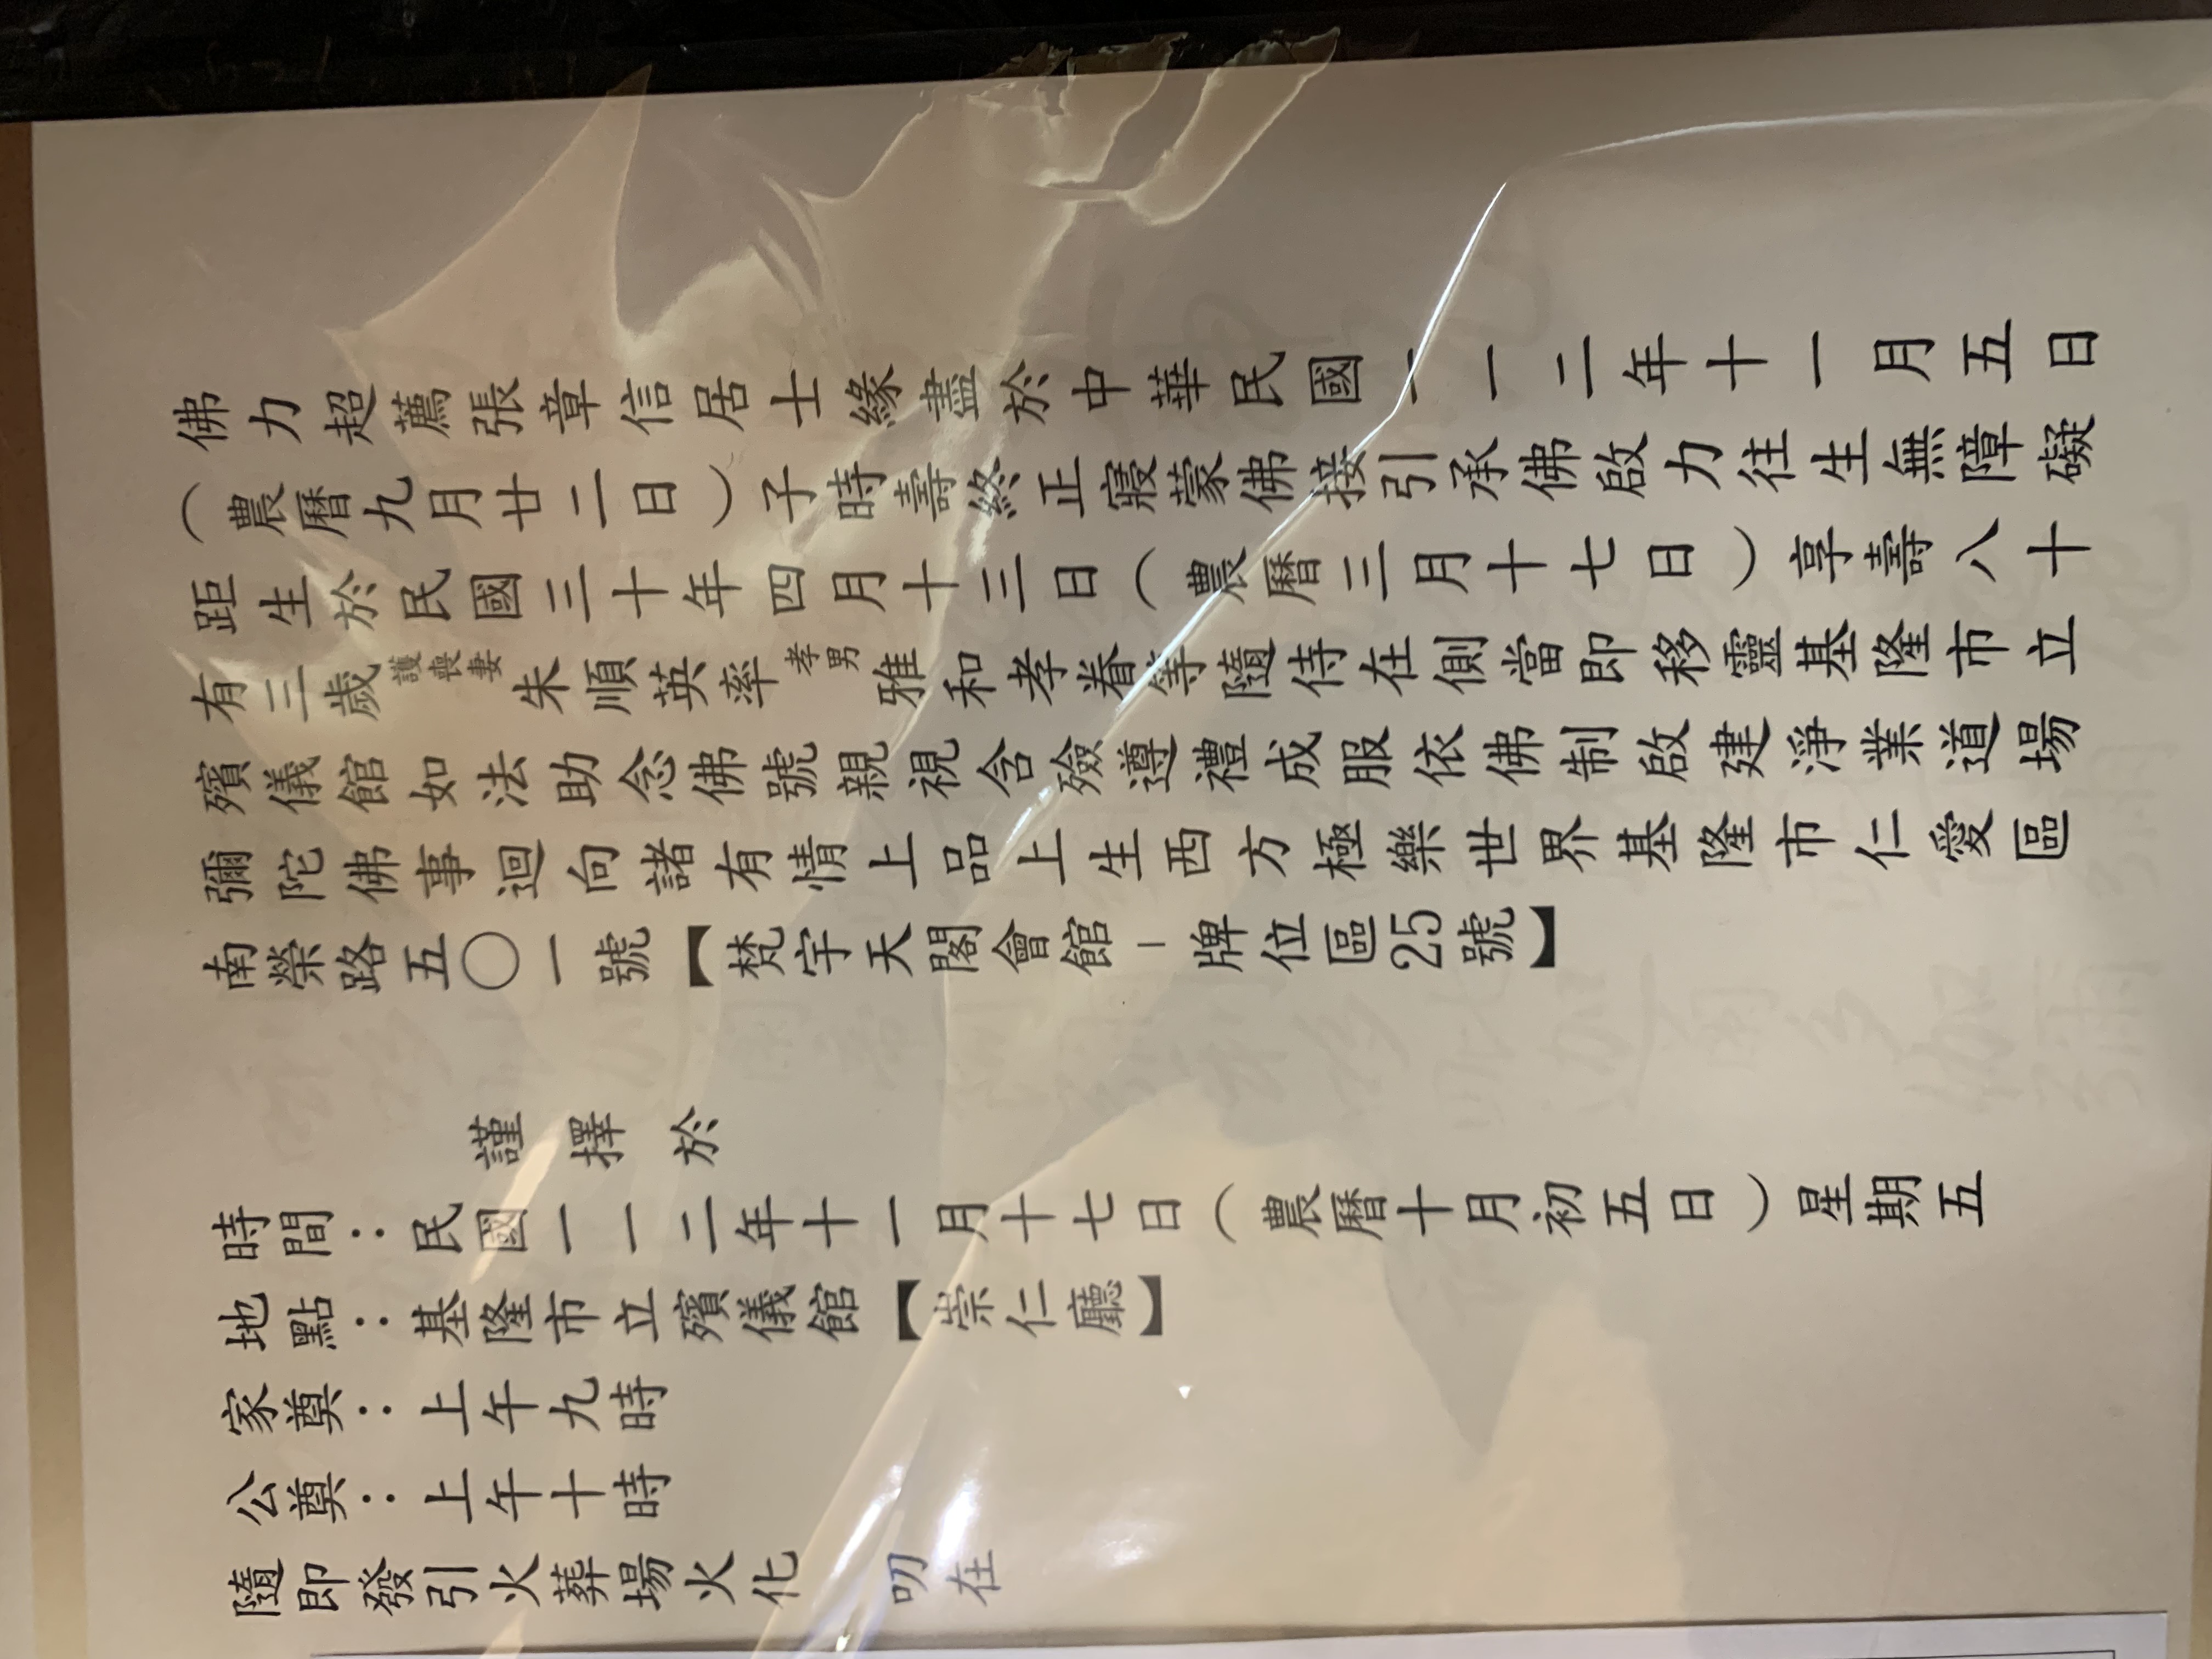 佛力超薦張章信居士緣盡於中華民國一一二年十一月五日
（農曆九月廿二日）子時壽終正寢蒙佛接引承佛啟力往生無障礙
距生於民國三十年四月十三日（農曆三月十七日）享壽八十
有三歲護喪妻朱順英率孝男雅和孝眷等隨侍在側當即移靈基隆市立
殯儀館如法助念佛號親視含殮遵禮成服依佛制啟建淨業道場
彌陀佛事迴向諸有情上品上生西方極樂世界基隆市仁愛區
南榮路五〇一號【梵宇天閣會館–牌位區25號】
謹擇於
時間：民國一一二年十一月十七日（農曆十月初五日）星期五
地點：基隆市立殯儀館【崇仁廳】
家奠：上午九時
公奠：上午十時
隨即發引火葬場火化 叨在